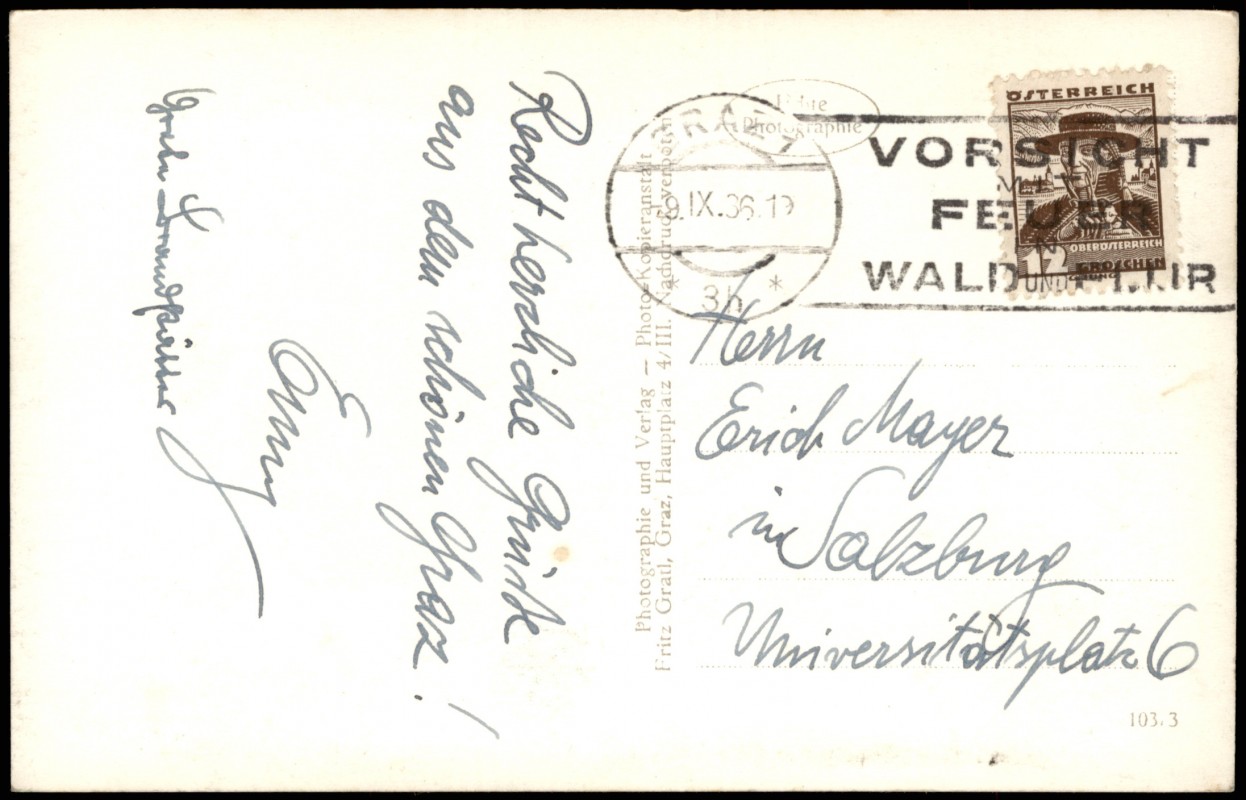 Recht herzliche Grüße
aus dem schönen Graz!
Emmy
Echte
Photographie
Photographie und Verlag — Photo-Kopieranstalt
Fritz Gratl, Graz, Hauptplatz 4/III. Nachdruck verboten
GRAZ 1
9.IX.36.19
* 3b *
VORSICHT
MIT
FEUER
IN
WALD UND FLUR
ÖSTERREICH
OBERÖSTERREICH
12 GROSCHEN
Herrn
Erich Mayer
in Salzburg
Universitätsplatz 6
103.3